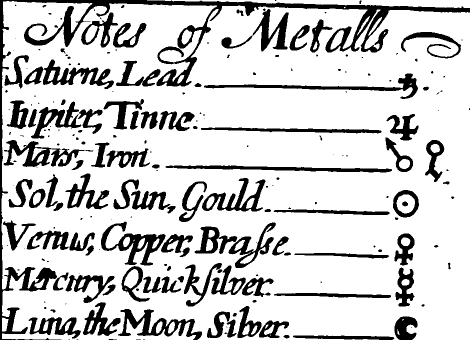 Notes of Metalls
Saturne, Lead. ♄.
Iupiter, Tinne. ♃
Mars, Iron. ♂
Sol, the Sun, Gould. ☉
Venus, Copper, Braſse. ♀
Mercury, Quickſilver. ☿
Luna, the Moon, Silver. ☾